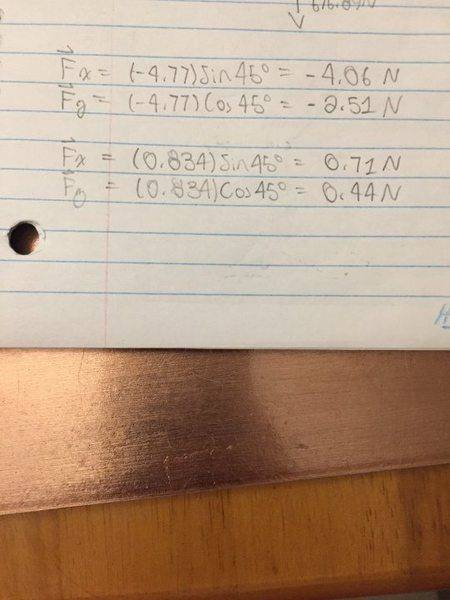 F⃗x = (-4.77)Sin45° = -4.06 N
F⃗y = (-4.77)Cos45° = -2.51 N
F⃗x = (0.834)Sin45° = 0.71 N
F⃗y = (0.834)Cos45° = 0.44N